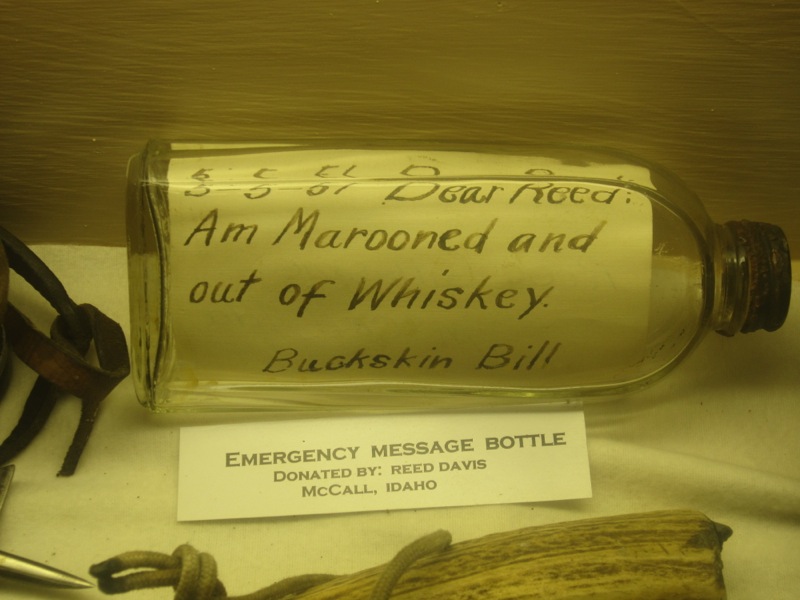 5-5-61 Dear Reed:
Am Marooned and
out of Whiskey.
Buckskin Bill
EMERGENCY MESSAGE BOTTLE
DONATED BY: REED DAVIS
MCCALL, IDAHO